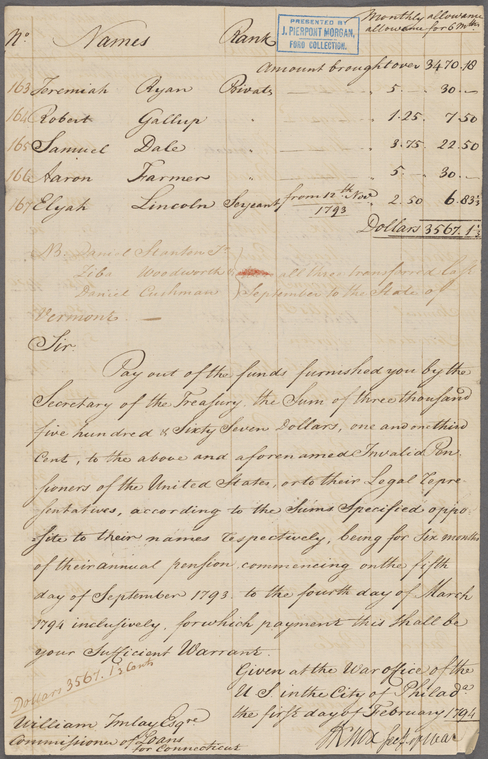 PRESENTED BY
J. PIERPONT MORGAN,
FORD COLLECTION.
No Names Rank Monthly allowance
allowance for 6 mths
Amount brought over 3470.18
163 Jeremiah Ryan Private 5. 30.
164 Robert Gallup " 1.25. 7.50
165 Samuel Dale " 3.75. 22.50
166 Aaron Farmer " 5. 30.
167 Elijah Lincoln Serjeant from 12th Novr 1793 2.50 6.83⅓
Dollars 3567.1⅓
NB. Daniel Stanton Jr
Woodworth all three transferred last
Daniel Cushman September to the State of
Vermont. —
Sir.
Pay out of the funds furnished you by the
Secretary of the Treasury, the Sum of three thousand
five hundred & Sixty Seven Dollars, one and one third
Cent, to the above and aforenamed Invalid Pen-
sioners of the United States, or to their Legal repre-
sentatives, according to the Sums Specified oppo
site to their names respectively, being for Six months
of their annual pension, commencing on the fifth
day of September 1793. to the fourth day of March
1794 inclusively, for which payment this Shall be
your Sufficient Warrant.
Given at the War office of the
U S in the City of Philada
the first day of February 1794
Dollars 3567. 1⅓ Cents
William Imlay Esqre
Commissioner of Loans
for Connecticut
HKnox Secy of War